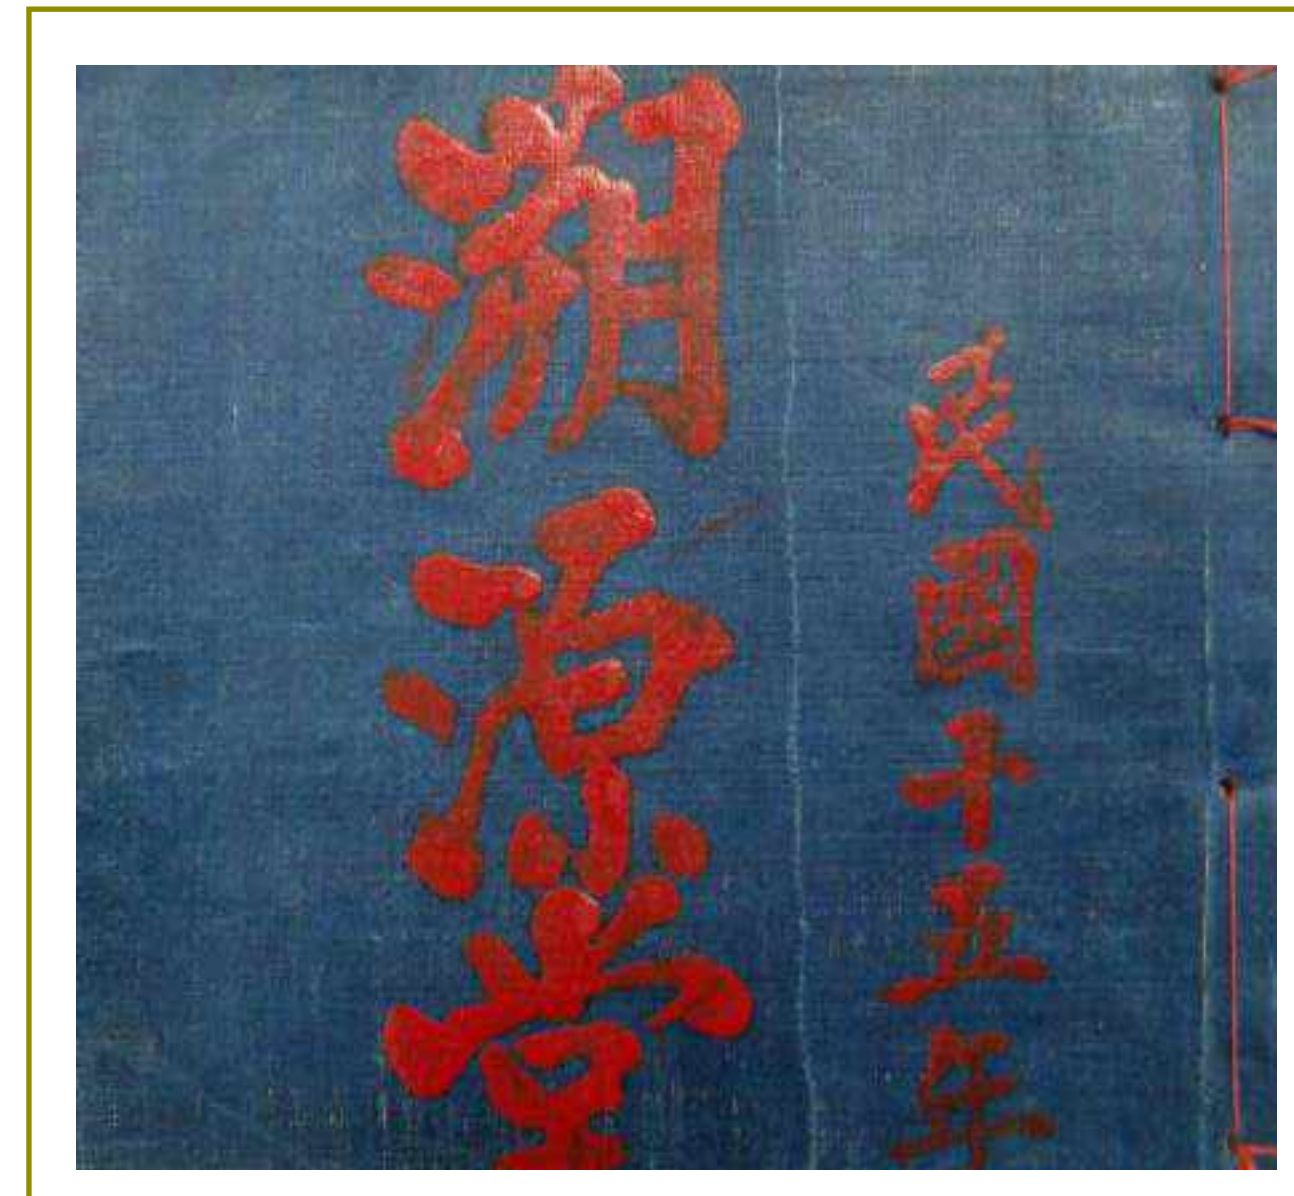 民國十五年
溯源堂